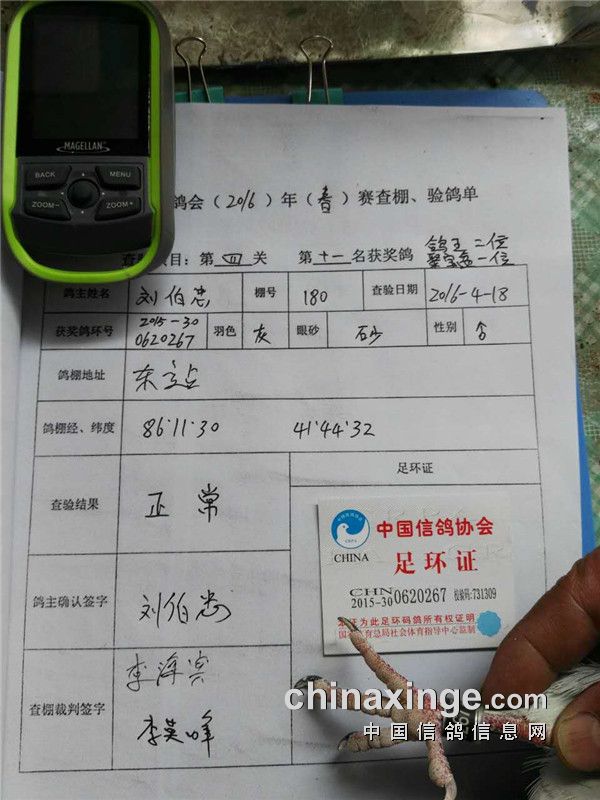 MAGELLAN
BACK
MENU
ZOOM−
ZOOM+
鸽会（2016）年（春）赛查棚、验鸽单
查验项目：第 四 关 第 十一 名获奖鸽 鸽王二位
一位
鸽主姓名 刘伯忠 棚号 180 查验日期 2016-4-18
获奖鸽环号 2015-30 0620267 羽色 灰 眼砂 石砂 性别 ♂
鸽棚地址 东立点
鸽棚经、纬度 86°11'30 41°44'32
足环证
查验结果 正常
中国信鸽协会
CHINA
足环证
CHN
2015-30 0620267 校验码:731309
本证为此足环码鸽所有权证明
国家体育总局社会体育指导中心监制
鸽主确认签字 刘伯忠
查棚裁判签字 李泽宾
李英峰
chinaxinge.com
中国信鸽信息网